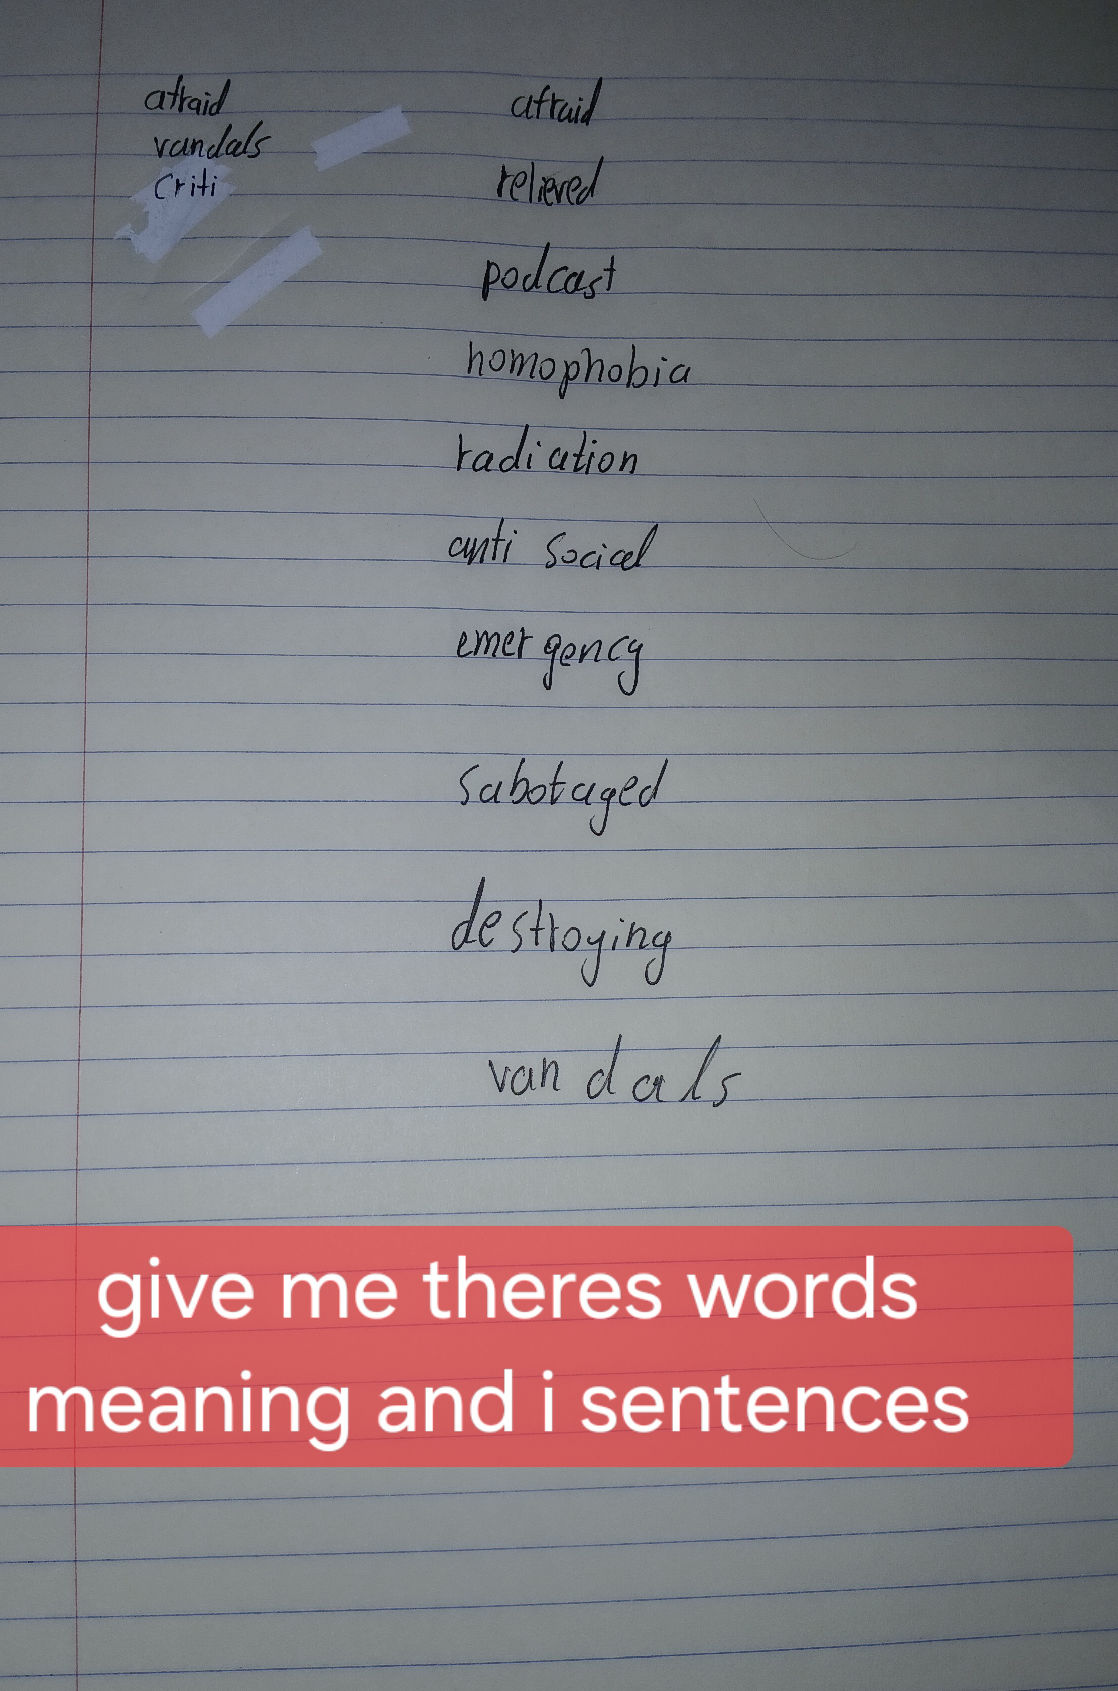 afraid
vandals
Criti
afraid
relieved
podcast
homophobia
radiation
anti social
emergency
sabotaged
destroying
vandals
give me theres words
meaning and i sentences